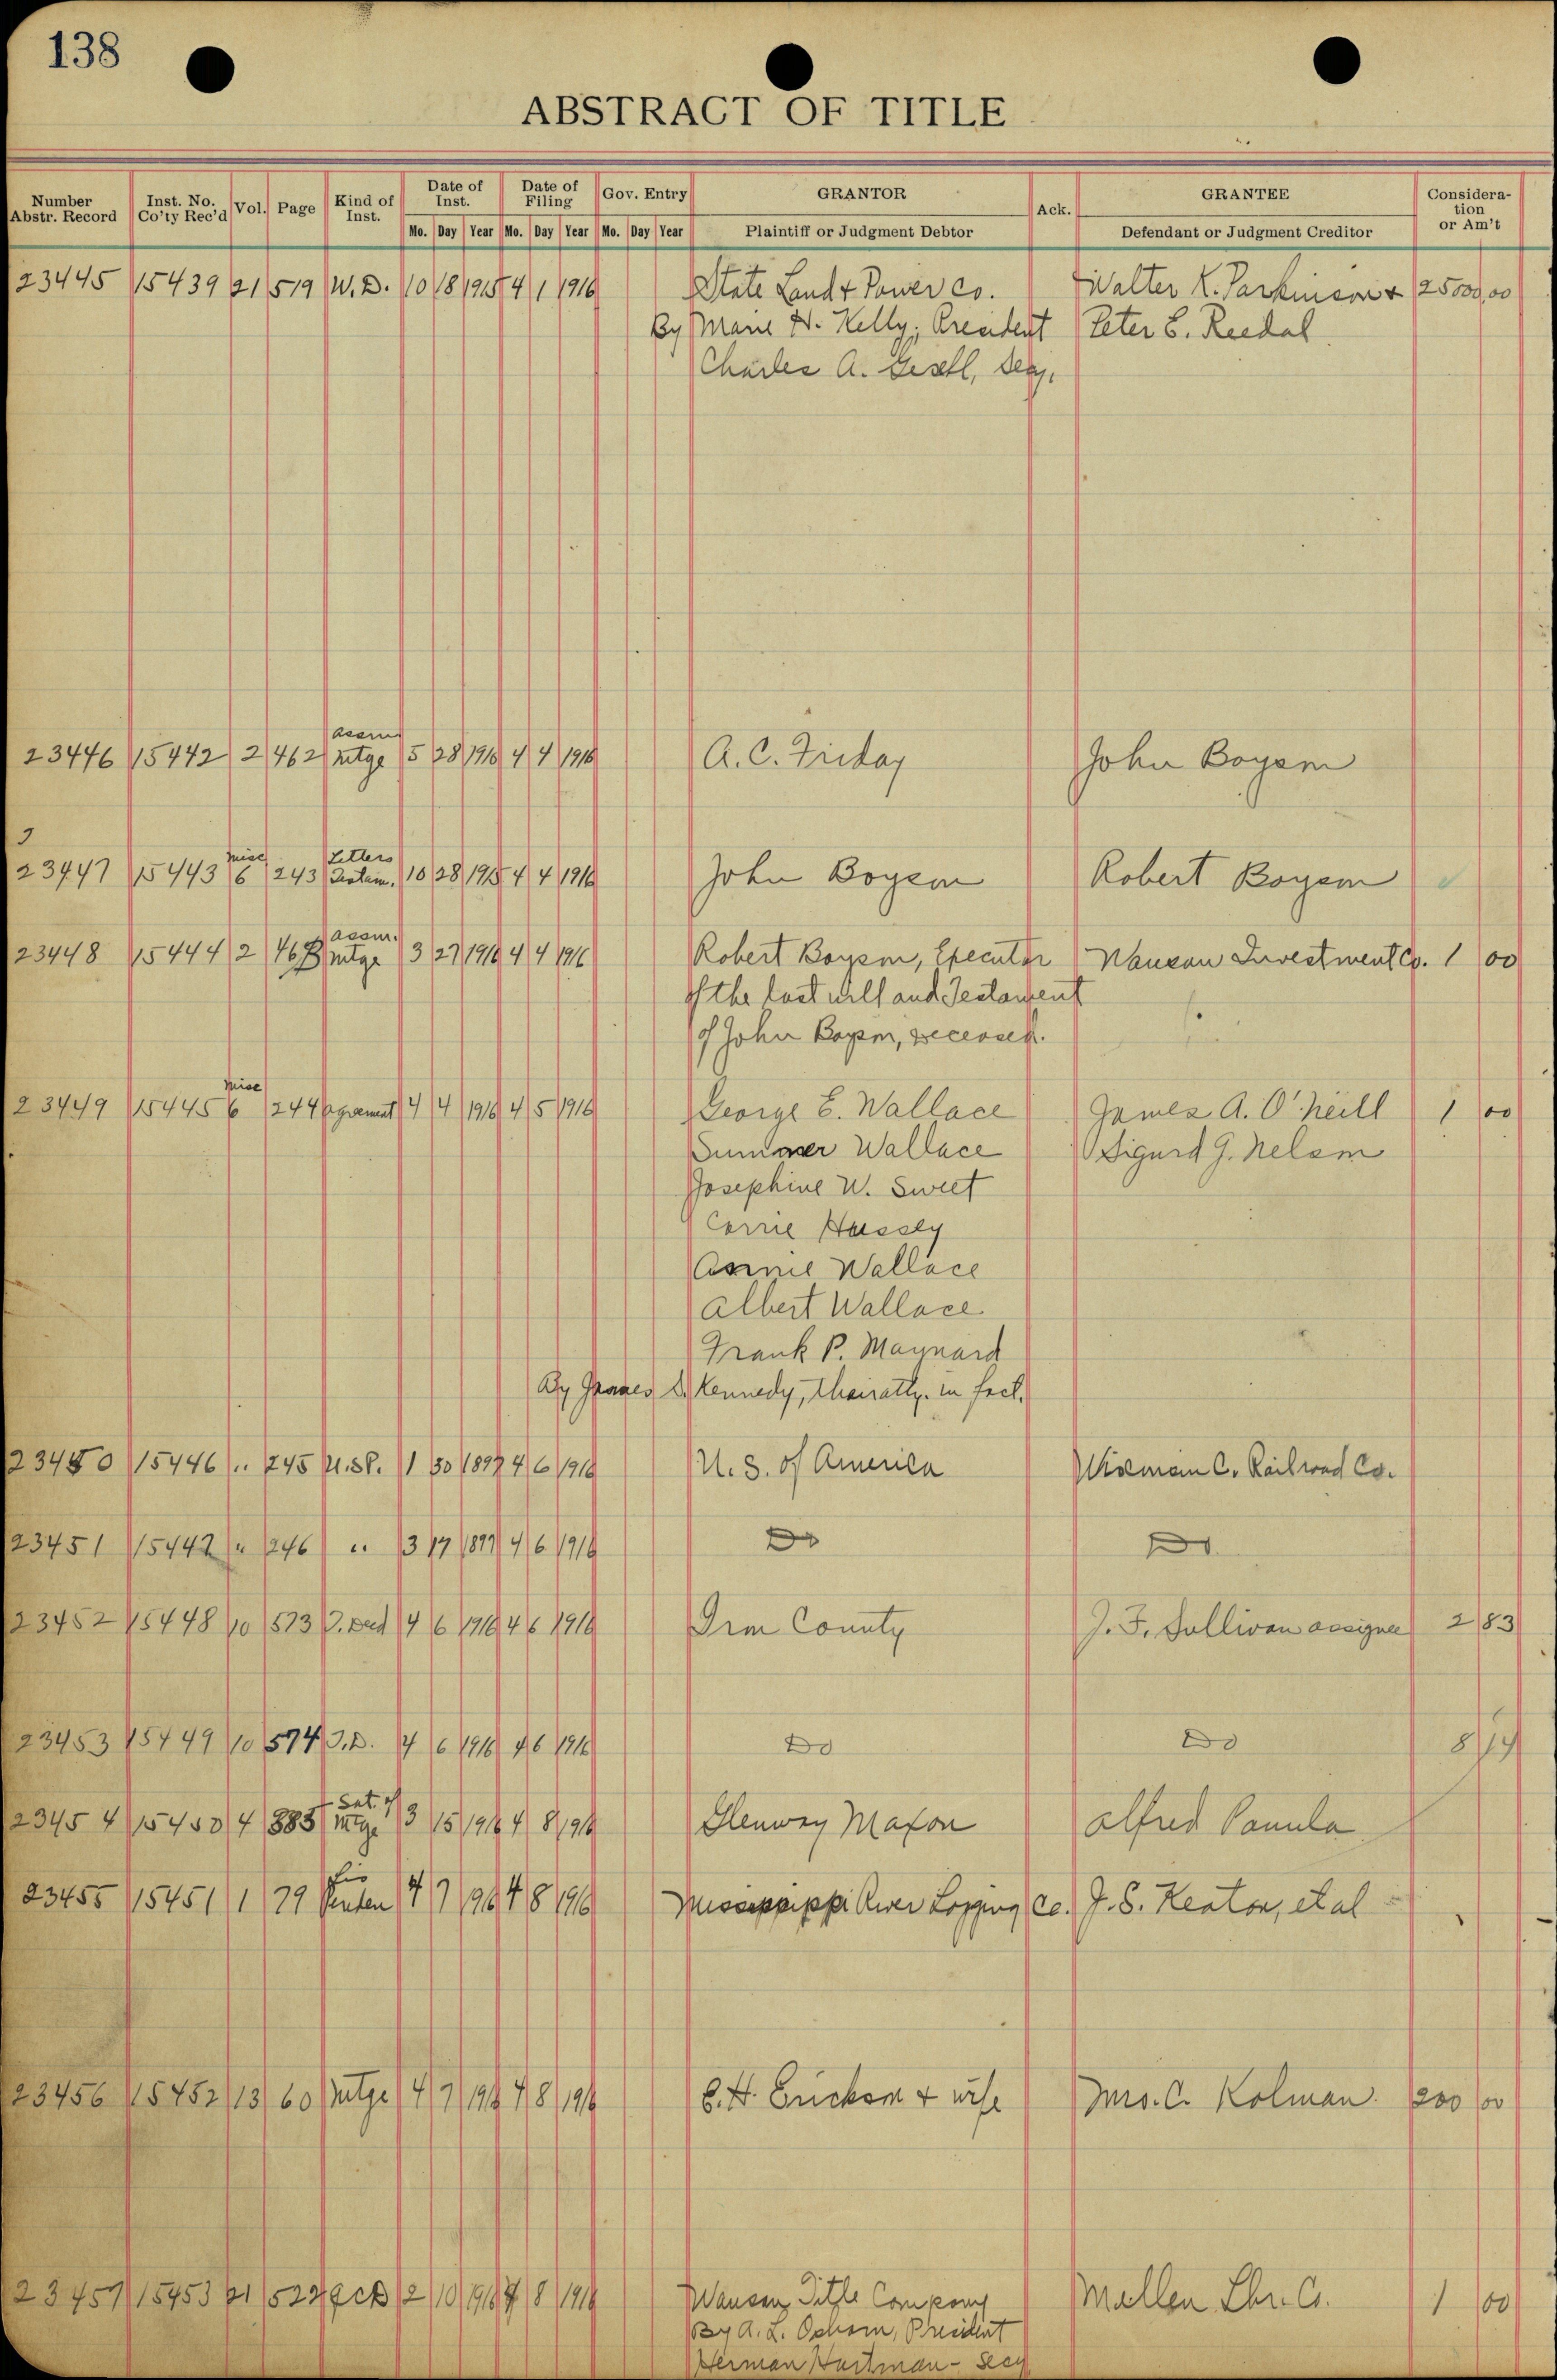 138
ABSTRACT OF TITLE
Number Abstr. Record Inst. No. Co'ty Rec'd Vol. Page Kind of Inst. Date of Inst. Date of Filing Gov. Entry GRANTOR Ack. GRANTEE Considera-tion or Am't
Mo. Day Year Mo. Day Year Mo. Day Year Plaintiff or Judgment Debtor Defendant or Judgment Creditor
23445 15439 21 519 W.D. 10 18 1915 4 1 1916 State Land & Power Co. Walter K. Parkinson & 25000,00
By Marie H. Kelly, President Peter E. Reedal
Charles A. Gesell, Secy.
Assm
23446 15442 2 462 mtge 5 28 1916 4 4 1916 A. C. Friday John Boysen
misc Letters
23447 15443 6 243 Testam. 10 28 1915 4 4 1916 John Boysen Robert Boysen
Assm.
23448 15444 2 463 mtge 3 27 1916 4 4 1916 Robert Boysen, Executor Wausau Investment Co. 1 00
of the last will and Testament
of John Boysen, deceased.
misc
23449 15445 6 244 agreement 4 4 1916 4 5 1916 George E. Wallace James A. O'Neill 1 00
Sumner Wallace Sigurd G. Nelson
Josephine W. Sweet
Carrie Hussey
Annie Wallace
Albert Wallace
Frank P. Maynard
By James S. Kennedy, their atty. in fact.
23450 15446 " 245 U.S.P. 1 30 1897 4 6 1916 U. S. of America Wisconsin C. Railroad Co.
23451 15447 " 246 " 3 17 1897 4 6 1916 Do Do
23452 15448 10 573 T. Deed 4 6 1916 4 6 1916 Iron County J. F. Sullivan assignee 2 83
23453 15449 10 574 T.D. 4 6 1916 4 6 1916 Do Do 8 14
Sat. of
23454 15450 4 385 mtge 3 15 1916 4 8 1916 Glenway Maxon Alfred Pamula
Lis
23455 15451 1 79 Penden 4 7 1916 4 8 1916 Mississippi River Logging Co. J. S. Keator, et al
23456 15452 13 60 mtge 4 7 1916 4 8 1916 E. H. Erickson & wife Mrs. C. Kolman 200 00
23457 15453 21 522 QCD 2 10 1916 4 8 1916 Wausau Title Company Mellen Lbr. Co. 1 00
By A. L. Osborn, President
Herman Hartman - Secy